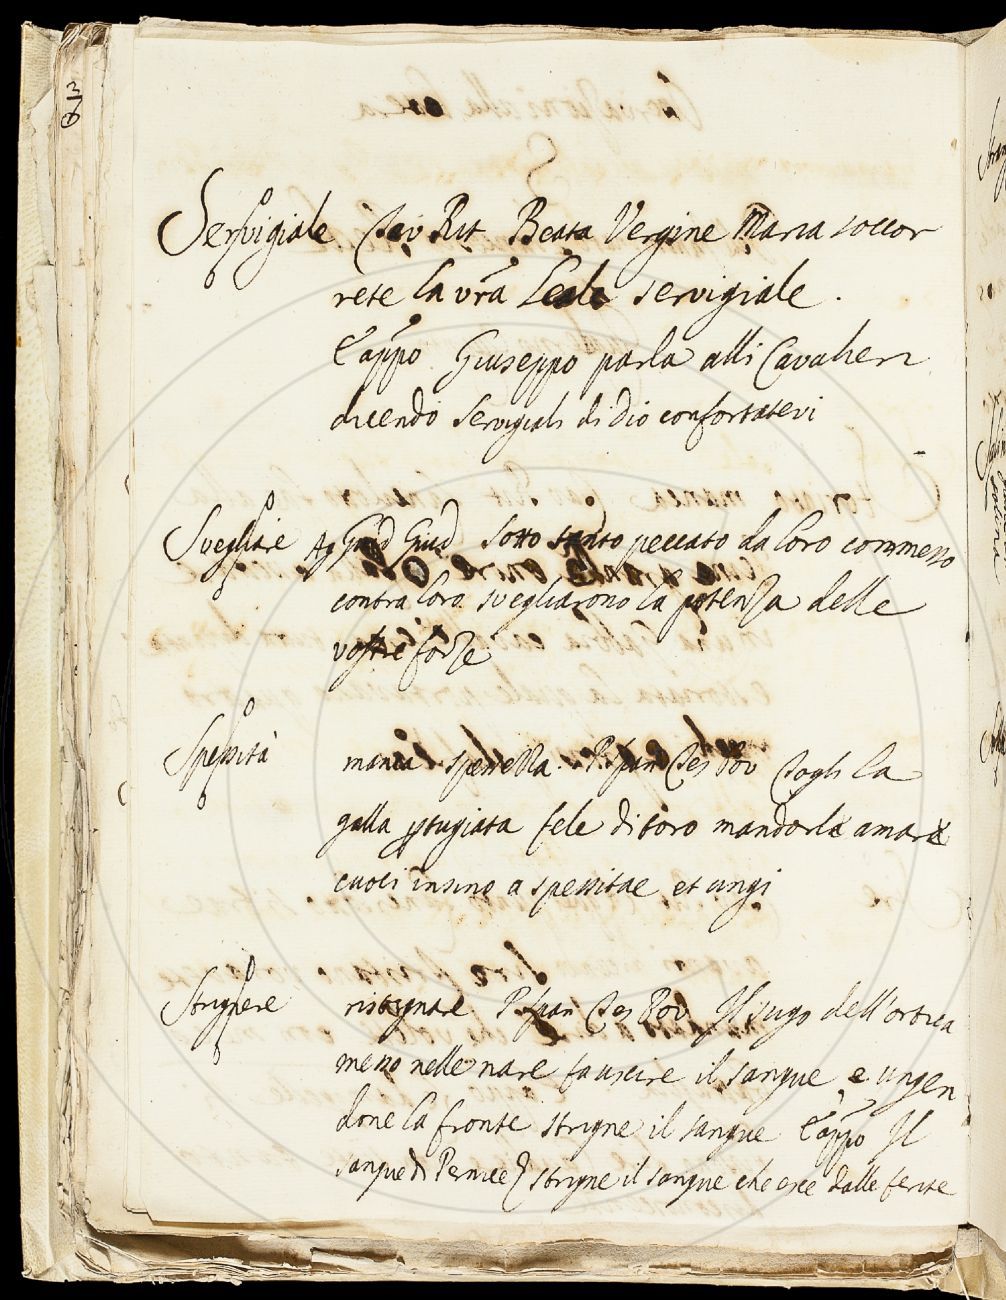 S
Servigiale Cav Rit Beata Vergine Maria soccor
rete la vra Leale servigiale.
E appo Giuseppo parla alli Cavalieri
dicendo servigiali di Dio confortatevi
Svegliare Ag Guid Giud sotto santo peccato da loro commesso
contra loro svegliarono la potenza delle
vostre forze
Spessità manca spessezza P. Span Tes Pov Togli la
galla pstugiata fele di toro mandorle amare
cuoci insino a spessitae et ungi
Strignere ristagnare P Span Tes Pov Il sugo dell'ortica
messo nelle nare fa uscire il sangue e ungen
done la fronte strigne il sangue E appo Il
sangue di Pernice strigne il sangue che esce dalle ferite